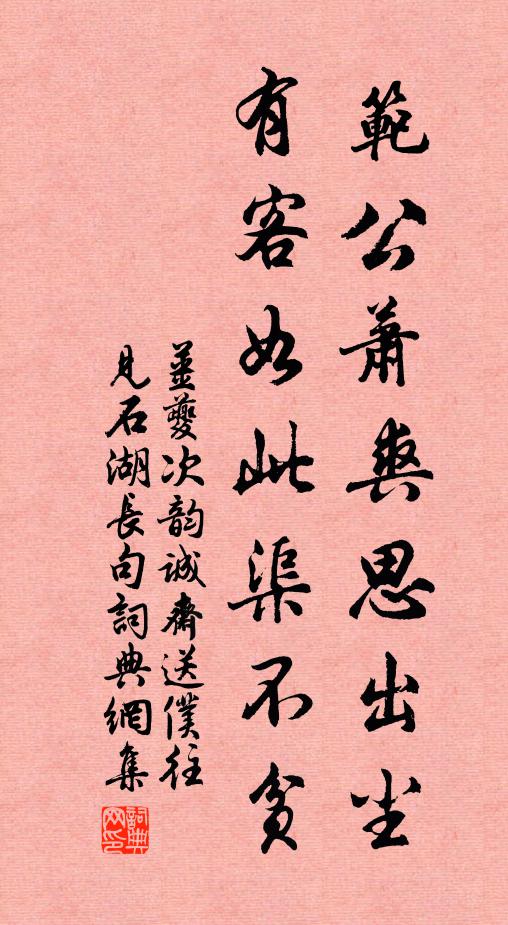 範公蕭爽思出尘
有客如此渠不貧
薑夔次韵誠齋送僕往
見石湖長句詞典網集
詞典网印